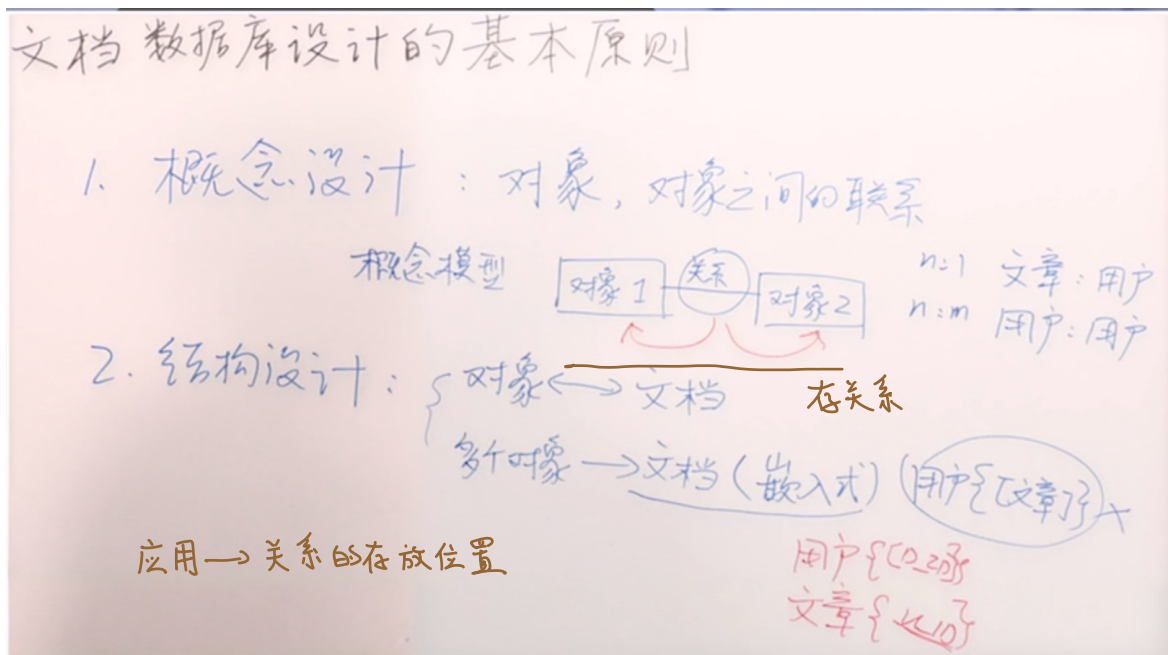 文档数据库设计的基本原则
1. 概念设计：对象，对象之间的联系
概念模型 对象1 关系 对象2 n:1 文章：用户
n:m 用户：用户
2. 结构设计：{ 对象 <-> 文档 存关系
多个对象 → 文档（嵌入式）（用户{[文章]}）×
应用 → 关系的存放位置
用户{
文章{